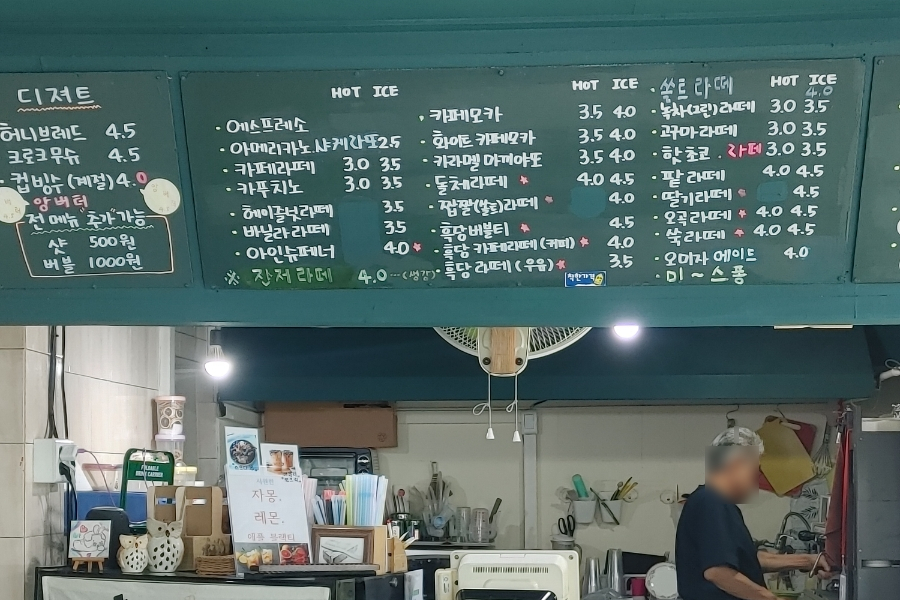 디져트
허니브레드 4.5
크로크무슈 4.5
컵빙수 (계절) 4.0
앙버터
전 메뉴 "추가" 가능
샷 500원
버블 1000원
HOT ICE
· 에스프레소
· 아메리카노 2.5
· 카페라떼 3.0 3.5
· 카푸치노 3.0 3.5
· 헤이즐넛라떼 3.5
· 바닐라라떼 3.5
· 아인슈페너 4.0
※ 진저라떼 4.0 ··· (생강)
HOT ICE
· 카페모카 3.5 4.0
· 화이트카페모카 3.5 4.0
· 카라멜 마끼아또 3.5 4.0
· 돌체라떼 4.0 4.5
· 짭짤(솔트)라떼
· 흑당버블티 4.5
· 흑당 카페라떼 (커피) 4.0
· 흑당라떼 (우유) 3.5
착한가격
HOT ICE
· 쏠트라떼 4.0
· 녹차(그린)라떼 3.0 3.5
· 고구마라떼 3.0 3.5
· 핫초코 · 라떼 3.0 3.5
· 팥라떼 4.0 4.5
· 딸기라떼 4.5
· 오곡라떼 4.0 4.5
· 쑥라떼 4.0 4.5
· 오미자 에이드 4.0
미~스퐁
자몽,
레몬,
애플 블랙티